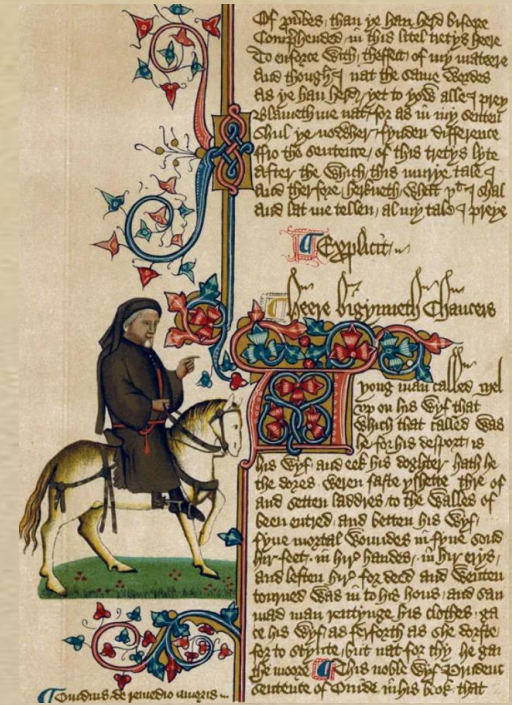 Of prouerbes, than ye han herd bifoore
Comprehended in this litel tretys heere
To enforce with, theffect of my mateere
And though I nat the same wordes
as ye han herd, yet to yow alle I prey
Blameth me nat, for as in my senten
Shul ye nowher fynden difference
ffro the sentence, of this tretys lyte
after the which, this murye tale I
and therfore, herkneth what yt I shal
and lat me tellen, al my tale I preye
Explicit
Heere bigynneth Chaucers
A yong man called Mel
vp on his wyf that
which that called was
he for his desport is
his wyf and eek his doghter, hath he
the dores weren faste yshette thre of
and setten laddres to the walles of
been entred, and betten his wyf,
fyue mortal woundes in fyue sond
hir feet, in hir handes, in hir erys,
and leften hir for deed and wenten
torned was in to his hous, and saw
mad man rentynge his clothes ga
te his wyf as ferforth as she dorste
for to stynte, but nat for thy he gan
the moore This noble wyf Prudent
sentence of Ouide in his book that
Ouidius de remedio amoris